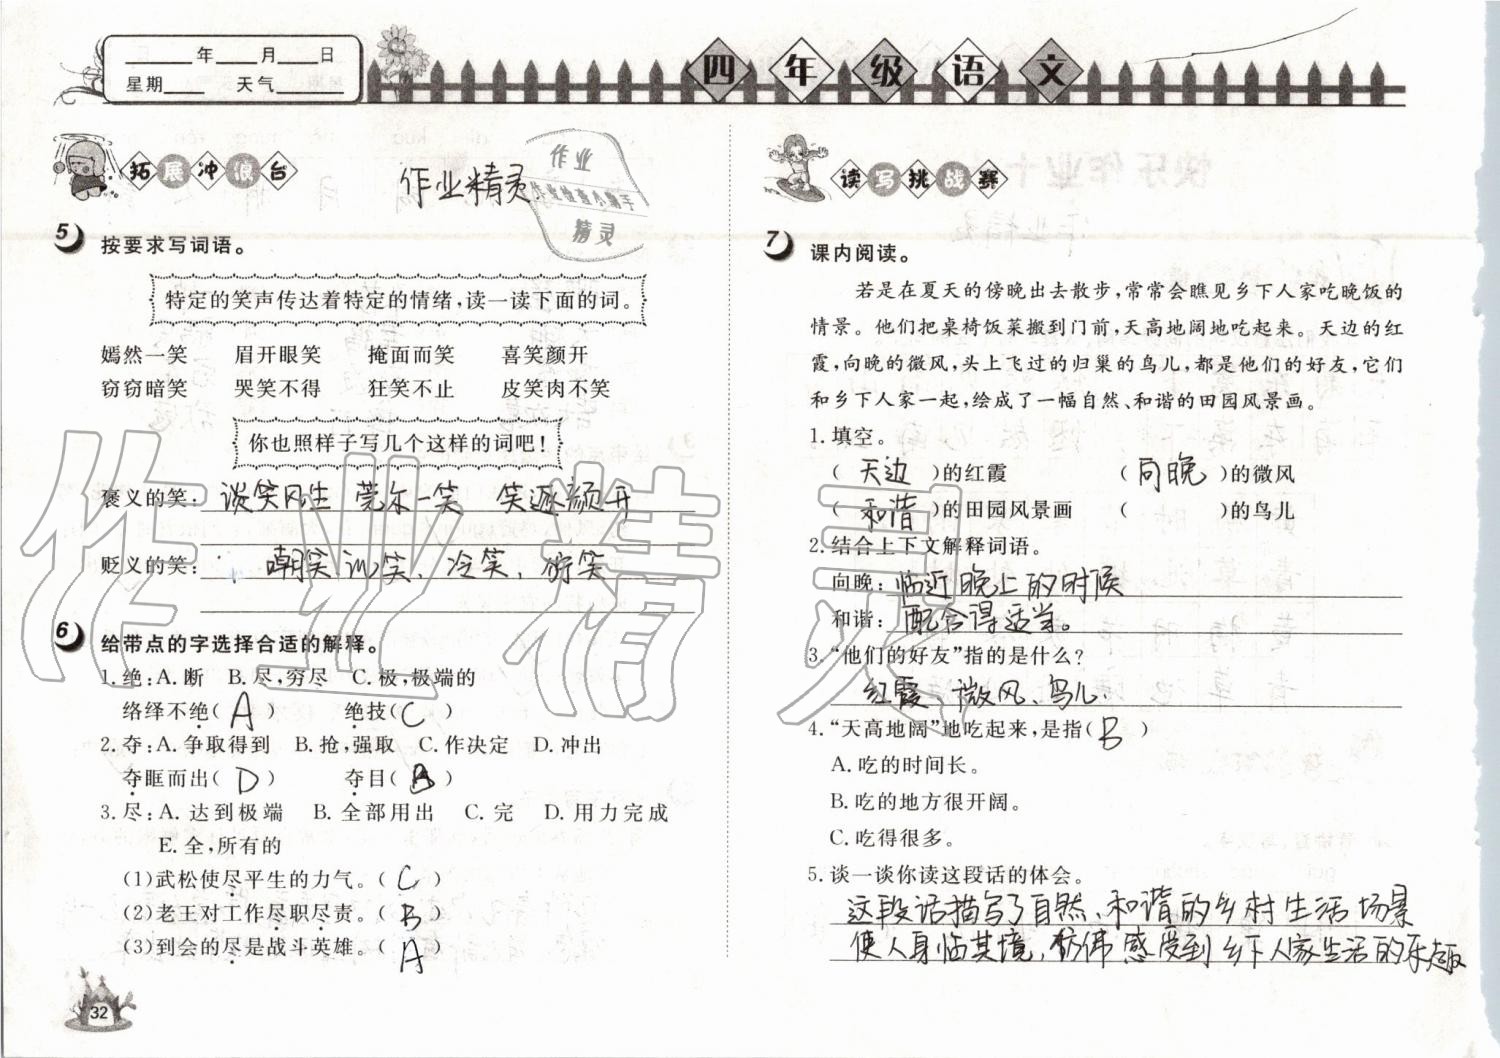 ____年____月____日
星期____ 天气____
四年级语文
拓展冲浪台
作业精灵
作业
作业检查小助手
精灵
5 按要求写词语。
特定的笑声传达着特定的情绪,读一读下面的词。
嫣然一笑 眉开眼笑 掩面而笑 喜笑颜开
窃窃暗笑 哭笑不得 狂笑不止 皮笑肉不笑
你也照样子写几个这样的词吧!
褒义的笑: 谈笑风生 莞尔一笑 笑逐颜开
贬义的笑: 嘲笑 讥笑、冷笑、奸笑
6 给带点的字选择合适的解释。
1.绝:A.断 B.尽,穷尽 C.极,极端的
络绎不绝( A ) 绝技( C )
2.夺:A.争取得到 B.抢,强取 C.作决定 D.冲出
夺眶而出( D ) 夺目( B )
3.尽:A.达到极端 B.全部用出 C.完 D.用力完成
E.全,所有的
(1)武松使尽平生的力气。( C )
(2)老王对工作尽职尽责。( B )
(3)到会的尽是战斗英雄。( A )
32
读写挑战赛
7 课内阅读。
若是在夏天的傍晚出去散步,常常会瞧见乡下人家吃晚饭的
情景。他们把桌椅饭菜搬到门前,天高地阔地吃起来。天边的红
霞,向晚的微风,头上飞过的归巢的鸟儿,都是他们的好友,它们
和乡下人家一起,绘成了一幅自然、和谐的田园风景画。
1.填空。
( 天边 )的红霞 ( 向晚 )的微风
( 和谐 )的田园风景画 ( )的鸟儿
2.结合上下文解释词语。
向晚: 临近晚上的时候
和谐: 配合得适当。
3.“他们的好友”指的是什么?
红霞、微风、鸟儿.
4.“天高地阔”地吃起来,是指( B )
A.吃的时间长。
B.吃的地方很开阔。
C.吃得很多。
5.谈一谈你读这段话的体会。
这段话描写了自然、和谐的乡村生活场景
使人身临其境,仿佛感受到乡下人家生活的乐趣
作业精灵